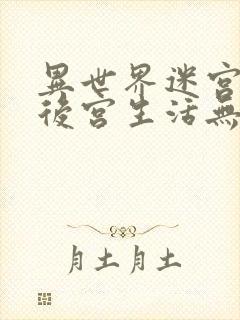 異世界迷宮
後宮生活無
月土月土